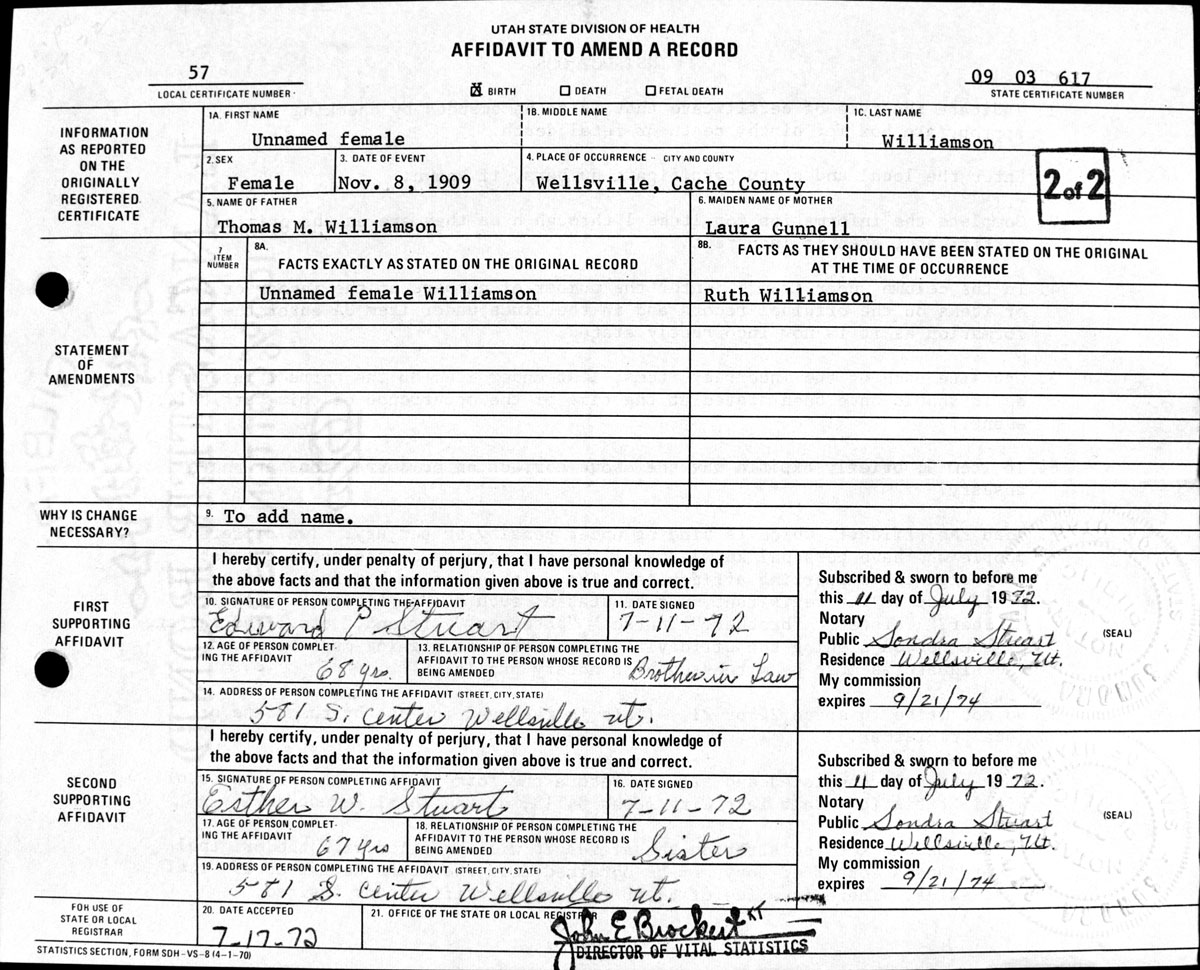 UTAH STATE DIVISION OF HEALTH
AFFIDAVIT TO AMEND A RECORD
57
LOCAL CERTIFICATE NUMBER
X BIRTH DEATH FETAL DEATH
09 03 617
STATE CERTIFICATE NUMBER
INFORMATION
AS REPORTED
ON THE
ORIGINALLY
REGISTERED
CERTIFICATE
1A. FIRST NAME
Unnamed female
1B. MIDDLE NAME
1C. LAST NAME
Williamson
2. SEX
Female
3. DATE OF EVENT
Nov. 8, 1909
4. PLACE OF OCCURRENCE - CITY AND COUNTY
Wellsville, Cache County
2 of 2
5. NAME OF FATHER
Thomas M. Williamson
6. MAIDEN NAME OF MOTHER
Laura Gunnell
STATEMENT
OF
AMENDMENTS
7
ITEM
NUMBER
8A.
FACTS EXACTLY AS STATED ON THE ORIGINAL RECORD
8B.
FACTS AS THEY SHOULD HAVE BEEN STATED ON THE ORIGINAL
AT THE TIME OF OCCURRENCE
Unnamed female Williamson
Ruth Williamson
WHY IS CHANGE
NECESSARY?
9. To add name.
FIRST
SUPPORTING
AFFIDAVIT
I hereby certify, under penalty of perjury, that I have personal knowledge of
the above facts and that the information given above is true and correct.
10. SIGNATURE OF PERSON COMPLETING THE AFFIDAVIT
Edward P Stuart
11. DATE SIGNED
7-11-72
12. AGE OF PERSON COMPLET-
ING THE AFFIDAVIT
68 yrs.
13. RELATIONSHIP OF PERSON COMPLETING THE
AFFIDAVIT TO THE PERSON WHOSE RECORD IS
BEING AMENDED
Brother in Law
14. ADDRESS OF PERSON COMPLETING THE AFFIDAVIT (STREET, CITY, STATE)
581 S. Center Wellsville Ut.
Subscribed & sworn to before me
this 11 day of July 1972.
Notary
Public Sondra Stuart (SEAL)
Residence Wellsville, Ut.
My commission
expires 9/21/74
SECOND
SUPPORTING
AFFIDAVIT
I hereby certify, under penalty of perjury, that I have personal knowledge of
the above facts and that the information given above is true and correct.
15. SIGNATURE OF PERSON COMPLETING AFFIDAVIT
Esther W. Stuart
16. DATE SIGNED
7-11-72
17. AGE OF PERSON COMPLET-
ING THE AFFIDAVIT
67 yrs
18. RELATIONSHIP OF PERSON COMPLETING THE
AFFIDAVIT TO THE PERSON WHOSE RECORD IS
BEING AMENDED
Sister
19. ADDRESS OF PERSON COMPLETING THE AFFIDAVIT (STREET, CITY, STATE)
581 S. Center Wellsville Ut.
Subscribed & sworn to before me
this 11 day of July 1972.
Notary
Public Sondra Stuart (SEAL)
Residence Wellsville, Ut.
My commission
expires 9/21/74
FOR USE OF
STATE OR LOCAL
REGISTRAR
20. DATE ACCEPTED
7-17-72
21. OFFICE OF THE STATE OR LOCAL REGISTRAR
John E Brockert KT
DIRECTOR OF VITAL STATISTICS
STATISTICS SECTION, FORM SDH-VS-8 (4-1-70)